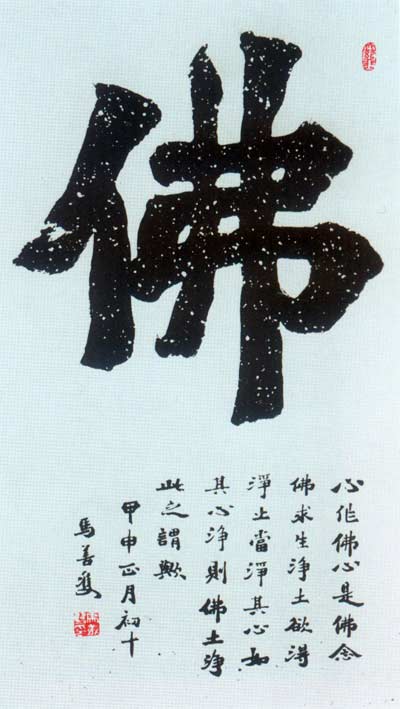 佛
心作佛心是佛念
佛求生淨土欲淂
淨土當淨其心如
其心淨則佛土淨
此之謂歟
甲申正月初十
馬善